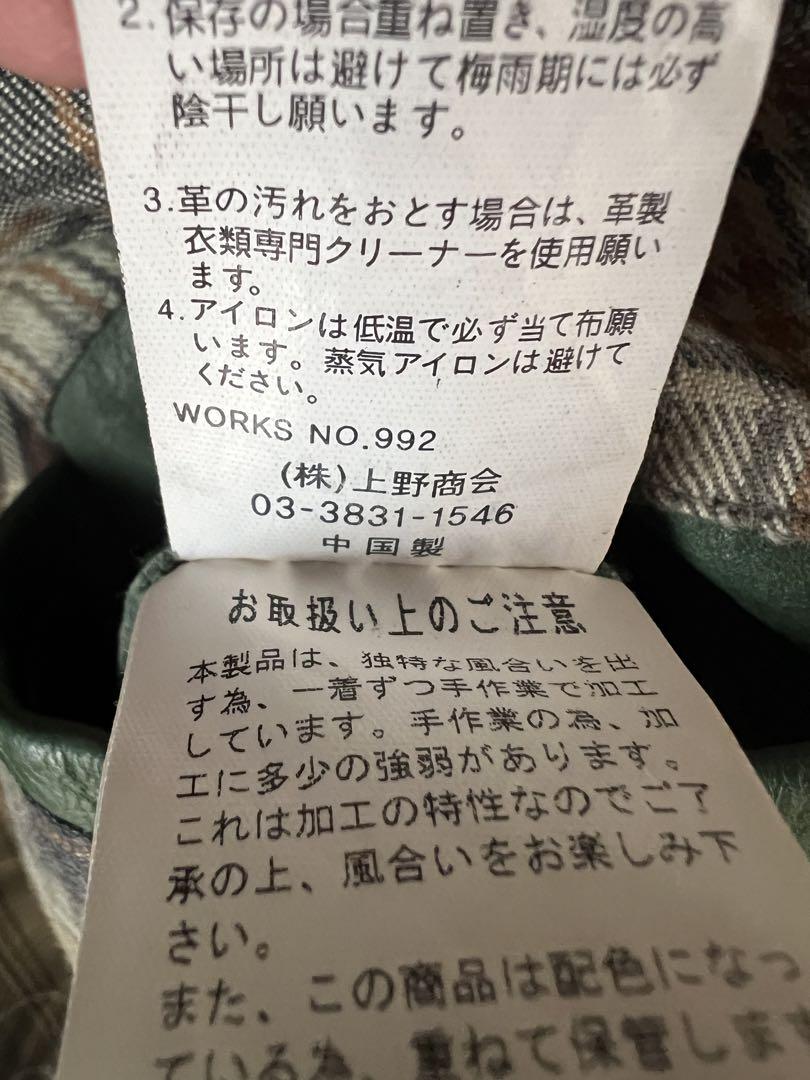 2.保存の場合重ね置き、湿度の高
い場所は避けて梅雨期には必ず
陰干し願います。
3.革の汚れをおとす場合は、革製
衣類専門クリーナーを使用願い
ます。
4.アイロンは低温で必ず当て布願
います。蒸気アイロンは避けて
ください。
WORKS NO.992
(株)上野商会
03-3831-1546
中国製
お取扱い上のご注意
本製品は、独特な風合いを出
す為、一着ずつ手作業で加工
しています。手作業の為、加
工に多少の強弱があります。
これは加工の特性なのでご了
承の上、風合いをお楽しみ下
さい。
また、この商品は配色になっ
ている為、重ねて保管します